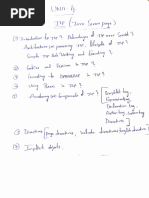 UNIT 4
JSP (Java Server page)
① Introduction to JSP ? Advantages of JSP over Servlet ?
Architecture processing JSP, Lifecycle of JSP ?
Simple JSP Web Working and Executing ?
② Cookies and Sessions in JSP ?
③ Connecting to DATABASE in JSP ?
④ Using Beans in JSP ?
⑤ JSP ?
Scriptlet tag,
Expression tag,
Declaration tag,
Action tag,
Directive
⑥ Directives [page directives, include directives taglib directive]
⑦ Implicit objects.